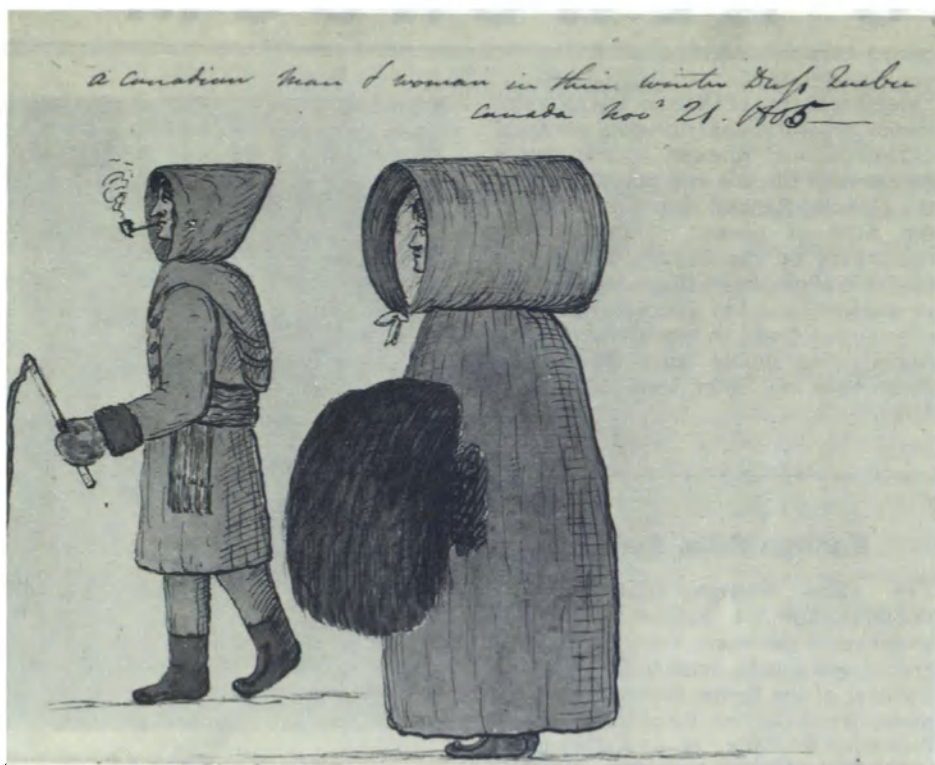 a Canadian Man & woman in their winter Dreſs Quebec
Canada Novʳ 21. 1805